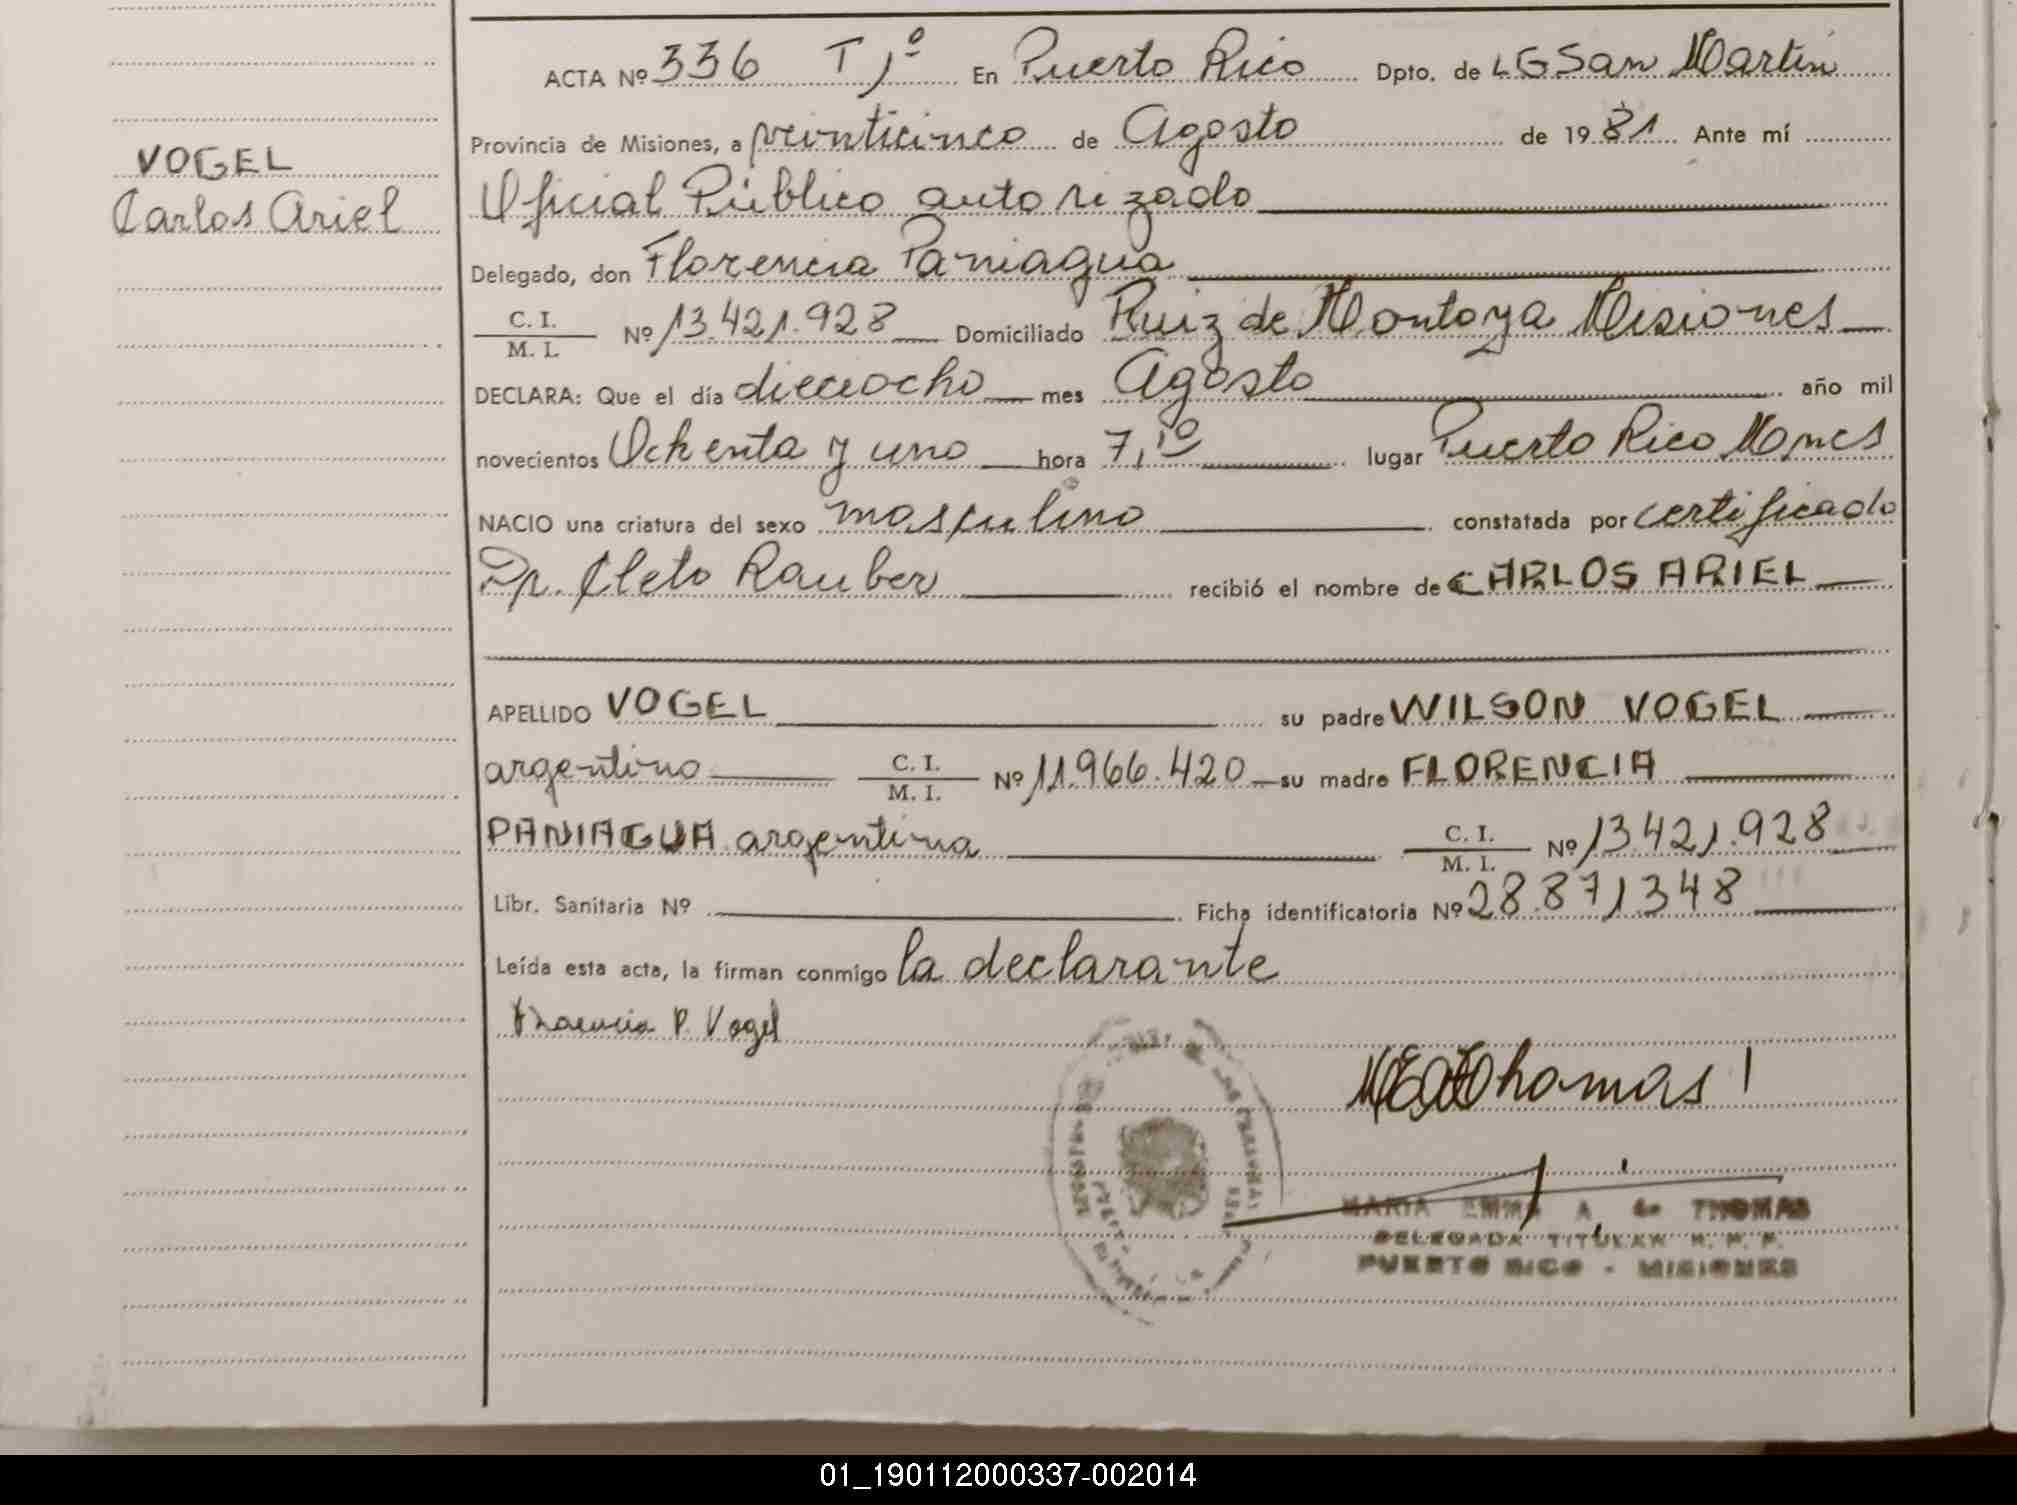 ACTA Nº 336 T 1º En Puerto Rico Dpto. de L G San Martin
VOGEL
Carlos Ariel
Provincia de Misiones, a veinticinco de Agosto de 1981 Ante mí
Oficial Público autorizado
Delegado, don Florencia Paniagua
C. I.
M. I. Nº 13.421.928 Domiciliado Ruiz de Montoya Misiones
DECLARA: Que el día dieciocho mes Agosto año mil
novecientos Ochenta y uno hora 7,10 lugar Puerto Rico Mnes
NACIO una criatura del sexo masculino constatada por certificado
Dr. Cleto Rauber recibió el nombre de CARLOS ARIEL
APELLIDO VOGEL su padre WILSON VOGEL
argentino C. I.
M. I. Nº 11.966.420 su madre FLORENCIA
PANIAGUA argentina C. I.
M. I. Nº 13.421.928
Libr. Sanitaria Nº Ficha identificatoria Nº 28.871348
Leída esta acta, la firman conmigo la declarante
P. Vogel
Thomas
MARIA EMMA A. de THOMAS
DELEGADA TITULAR R. P. P.
PUERTO RICO - MISIONES
01_190112000337-002014